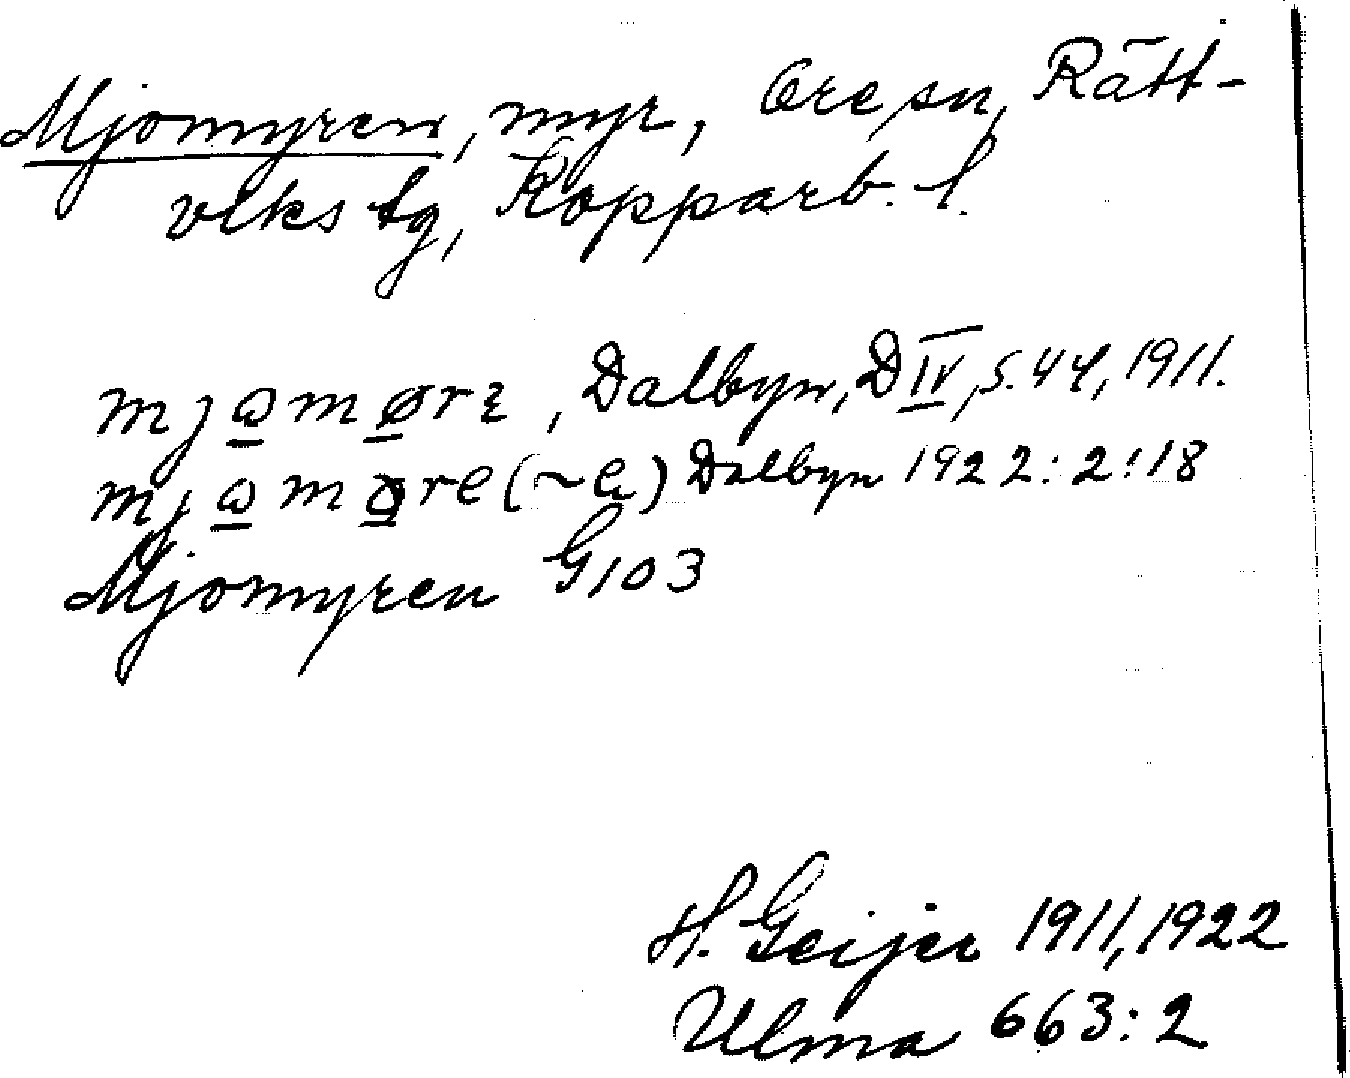 Mjomyren, myr, Ore sn, Rätt-
viks tg, Kopparb. l.
Dalbyn, D IV, s. 44, 1911.
Dalbyn 1922: 2:18
Mjomyren G103
H. Geijer 1911, 1922
Ulma 663:2